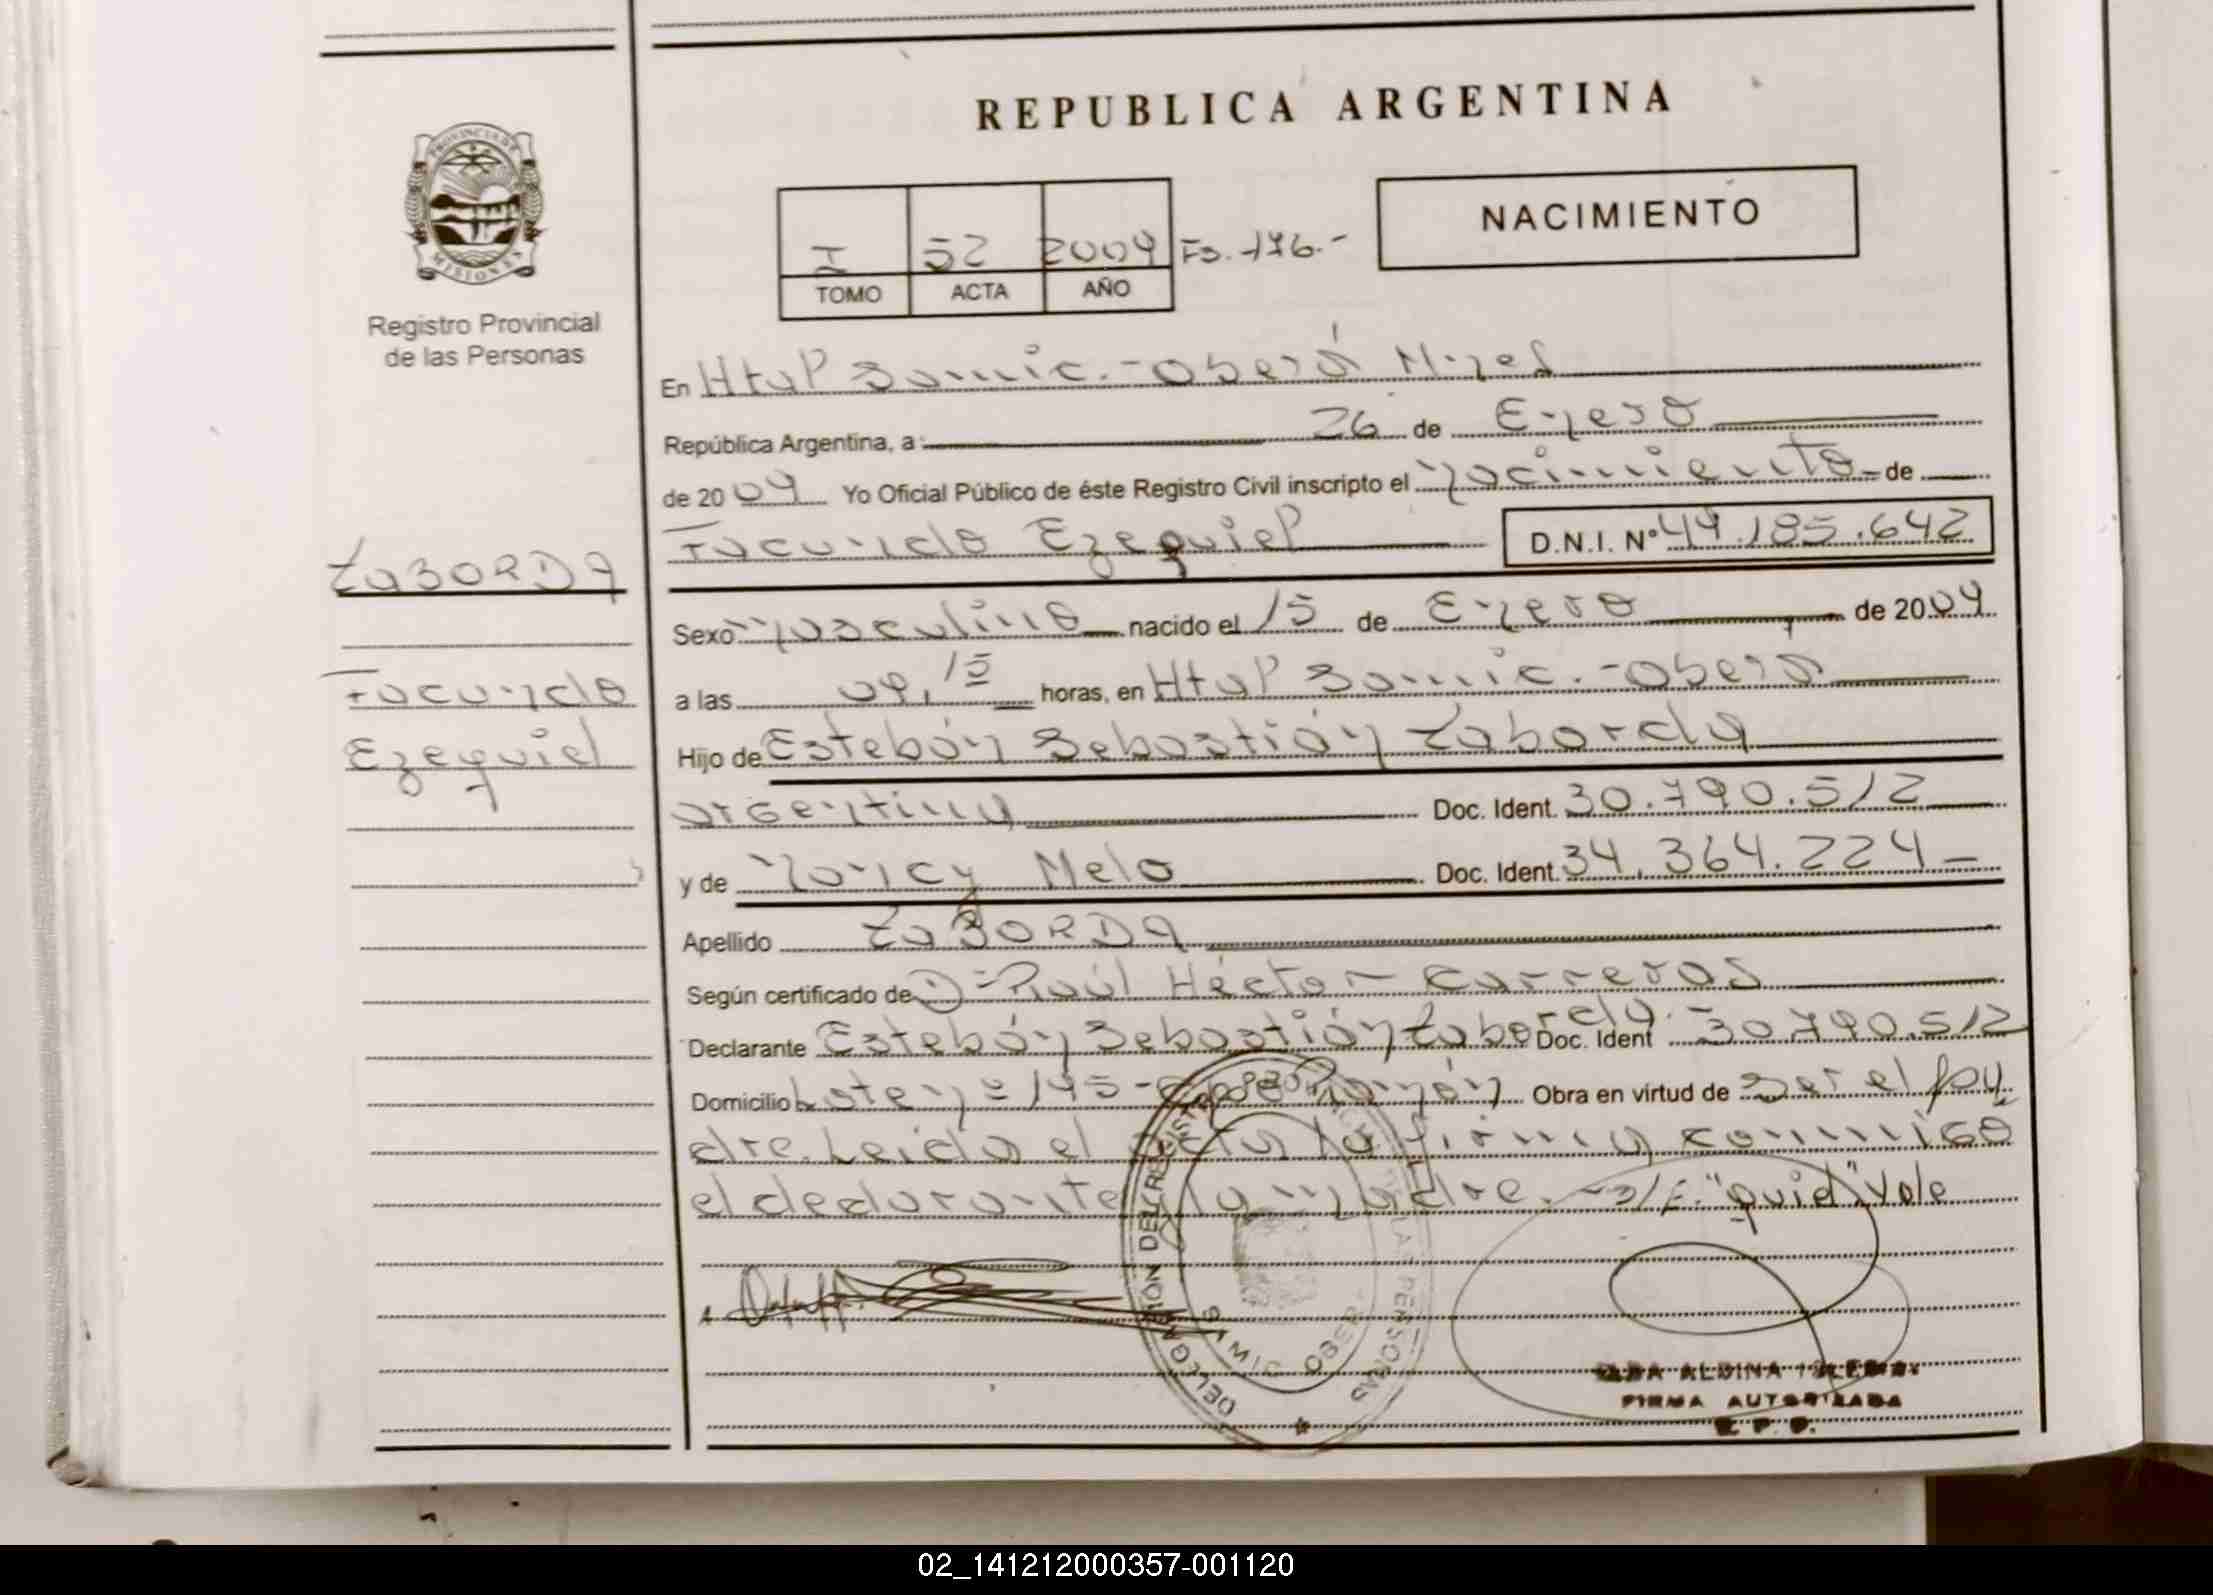 REPUBLICA ARGENTINA
PROVINCIA DE
MISIONES
Registro Provincial
de las Personas
NACIMIENTO
I 52 2004 Fs. 176.-
TOMO ACTA AÑO
En Htal Samic.-Oberá Mnes
República Argentina, a: 26 de Enero
de 2004 Yo Oficial Público de éste Registro Civil inscripto el Nacimiento de
Facundo Ezequiel D.N.I. N° 44.185.642
LaBORDA
Sexo Masculino nacido el 15 de Enero de 2004
Facundo
a las 09,15 horas, en Htal Samic.-Oberá
Ezequiel
Hijo de Estebán Sebastián Laborda
argentina Doc. Ident. 30.790.512
y de Nancy Melo Doc. Ident. 34.364.224-
Apellido LaBORDA
Según certificado de Dr. Raúl Héctor Carreras
Declarante Estebán Sebastián Laborda.- Doc. Ident 30.790.512
Domicilio Lote nº 145- Ramón Obra en virtud de ser el pa
dre. Leida el acta la firma conmigo
el declarante y la madre.- S/E: "quiel" Vale
DELEGACIÓN DEL REGISTRO PROVINCIAL DE LAS PERSONAS
SAMIC OBERA
ALBINA
FIRMA AUTORIZADA
R. P. P.
02_141212000357-001120